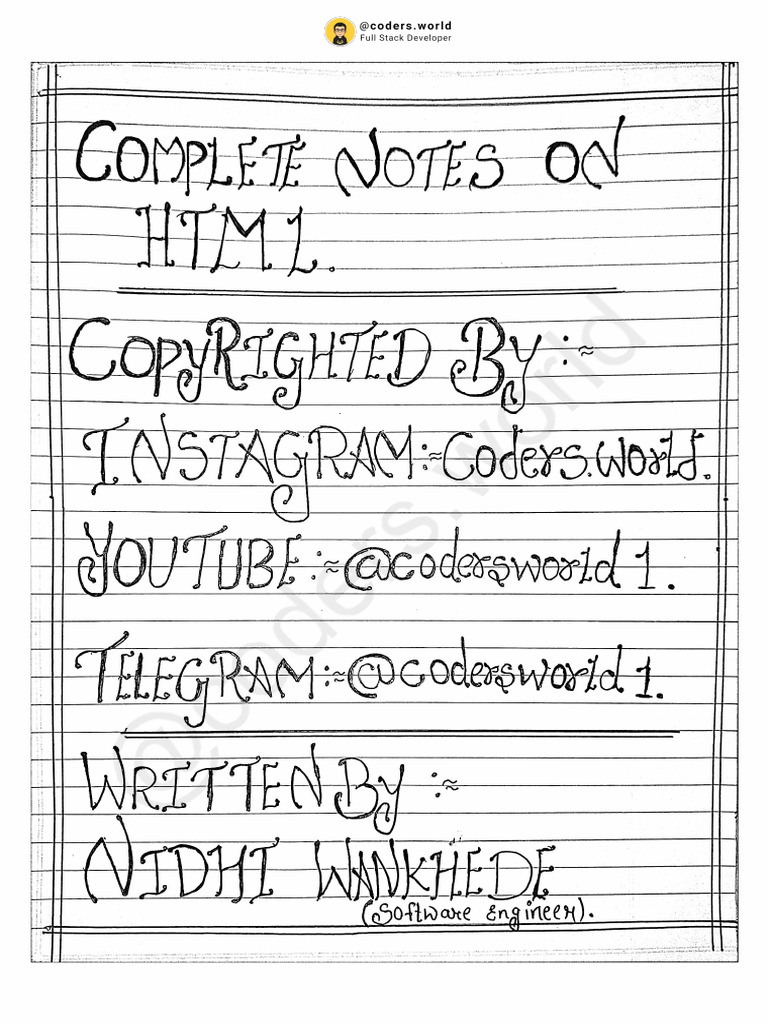 @coders.world
Full Stack Developer
COMPLETE NOTES ON
HTML.
COPYRIGHTED By :≈
INSTAGRAM:≈Coders.world.
YOUTUBE:≈@codersworld1.
TELEGRAM:≈@codersworld1.
WRITTEN By :≈
NIDHI WANKHEDE
(Software Engineer).
@coders.world